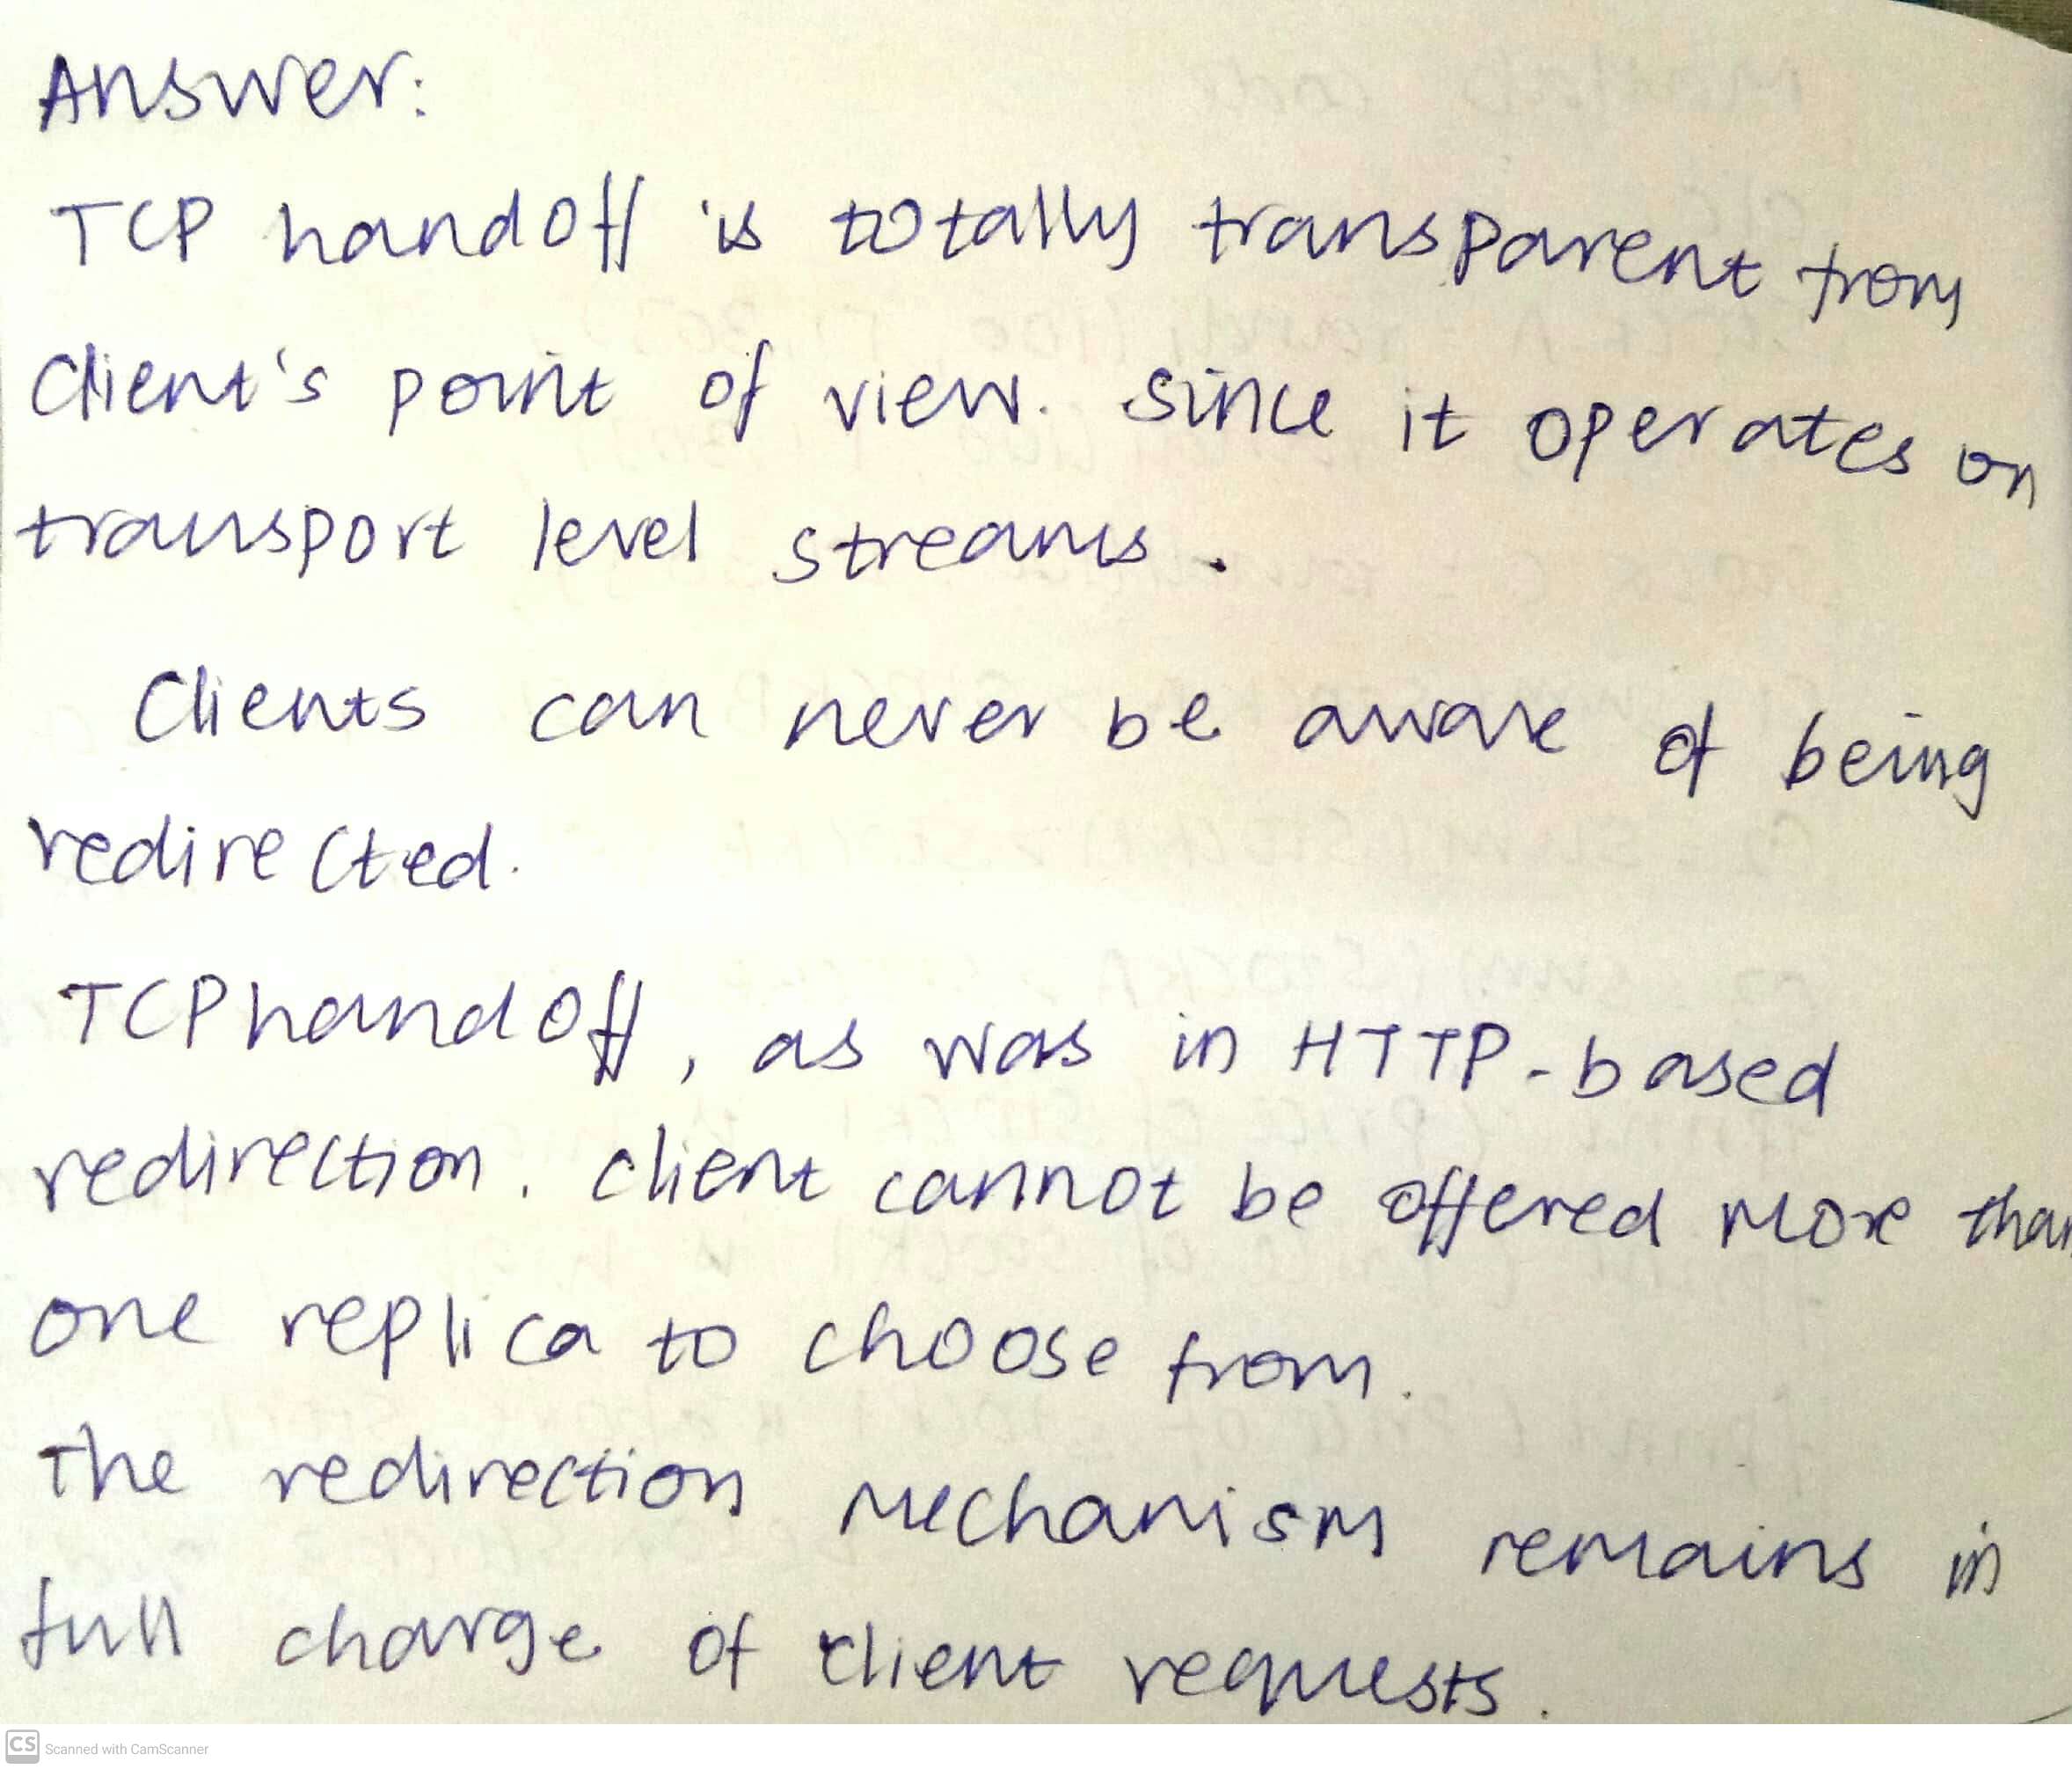 Answer:
TCP handoff is totally transparent from
Client's point of view. Since it operates on
transport level streams.
Clients can never be aware of being
redirected.
TCP handoff, as was in HTTP-based
redirection. client cannot be offered more than
one replica to choose from.
The redirection mechanism remains in
full charge of client requests.
CS Scanned with CamScanner